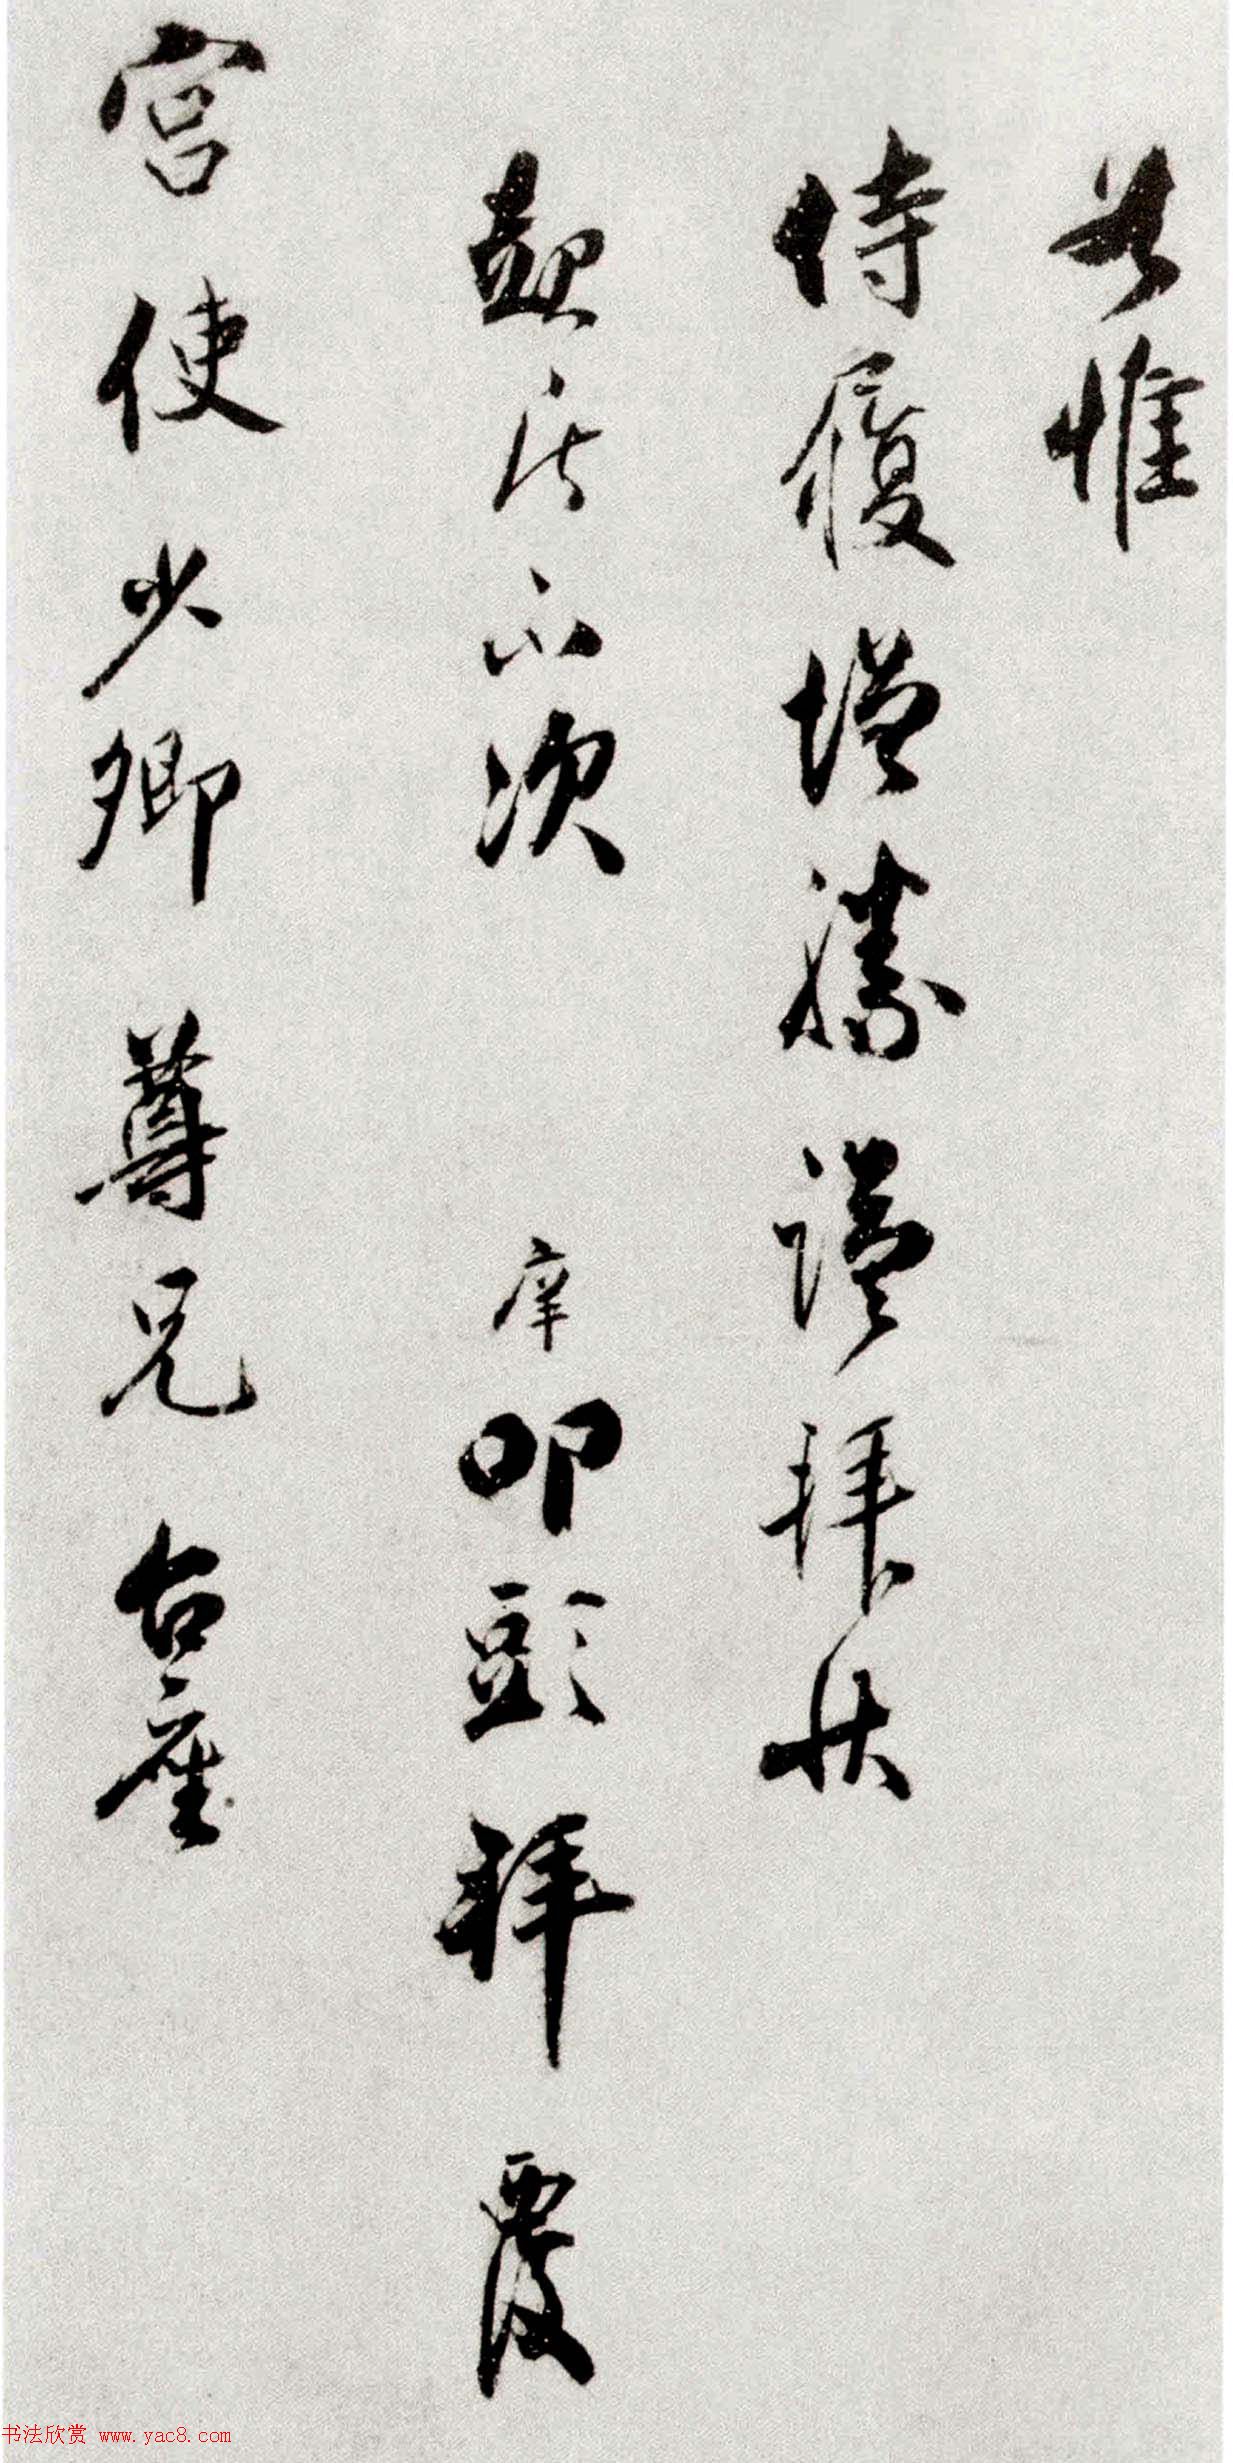 惟
侍履增勝謹拜狀
起居不次 庠叩頭拜覆
宮使少卿尊兄台座
书法欣赏 www.yac8.com